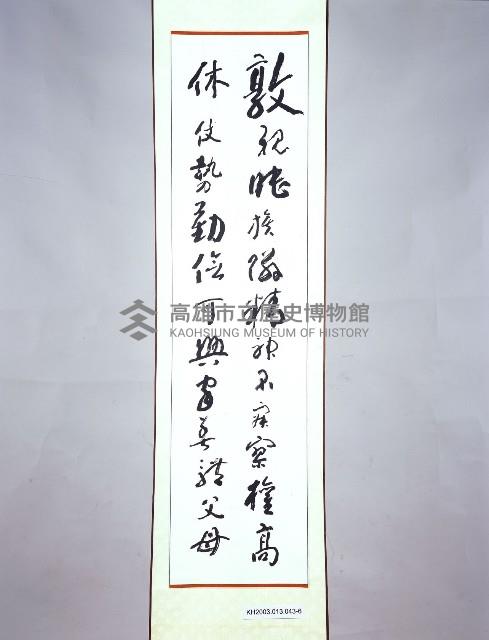 敦親睦族隣精神不寂寞權高
休仗勢勤儉可興家善體父母
高雄市立歷史博物館
KAOHSIUNG MUSEUM OF HISTORY
KH2003.013.043-6